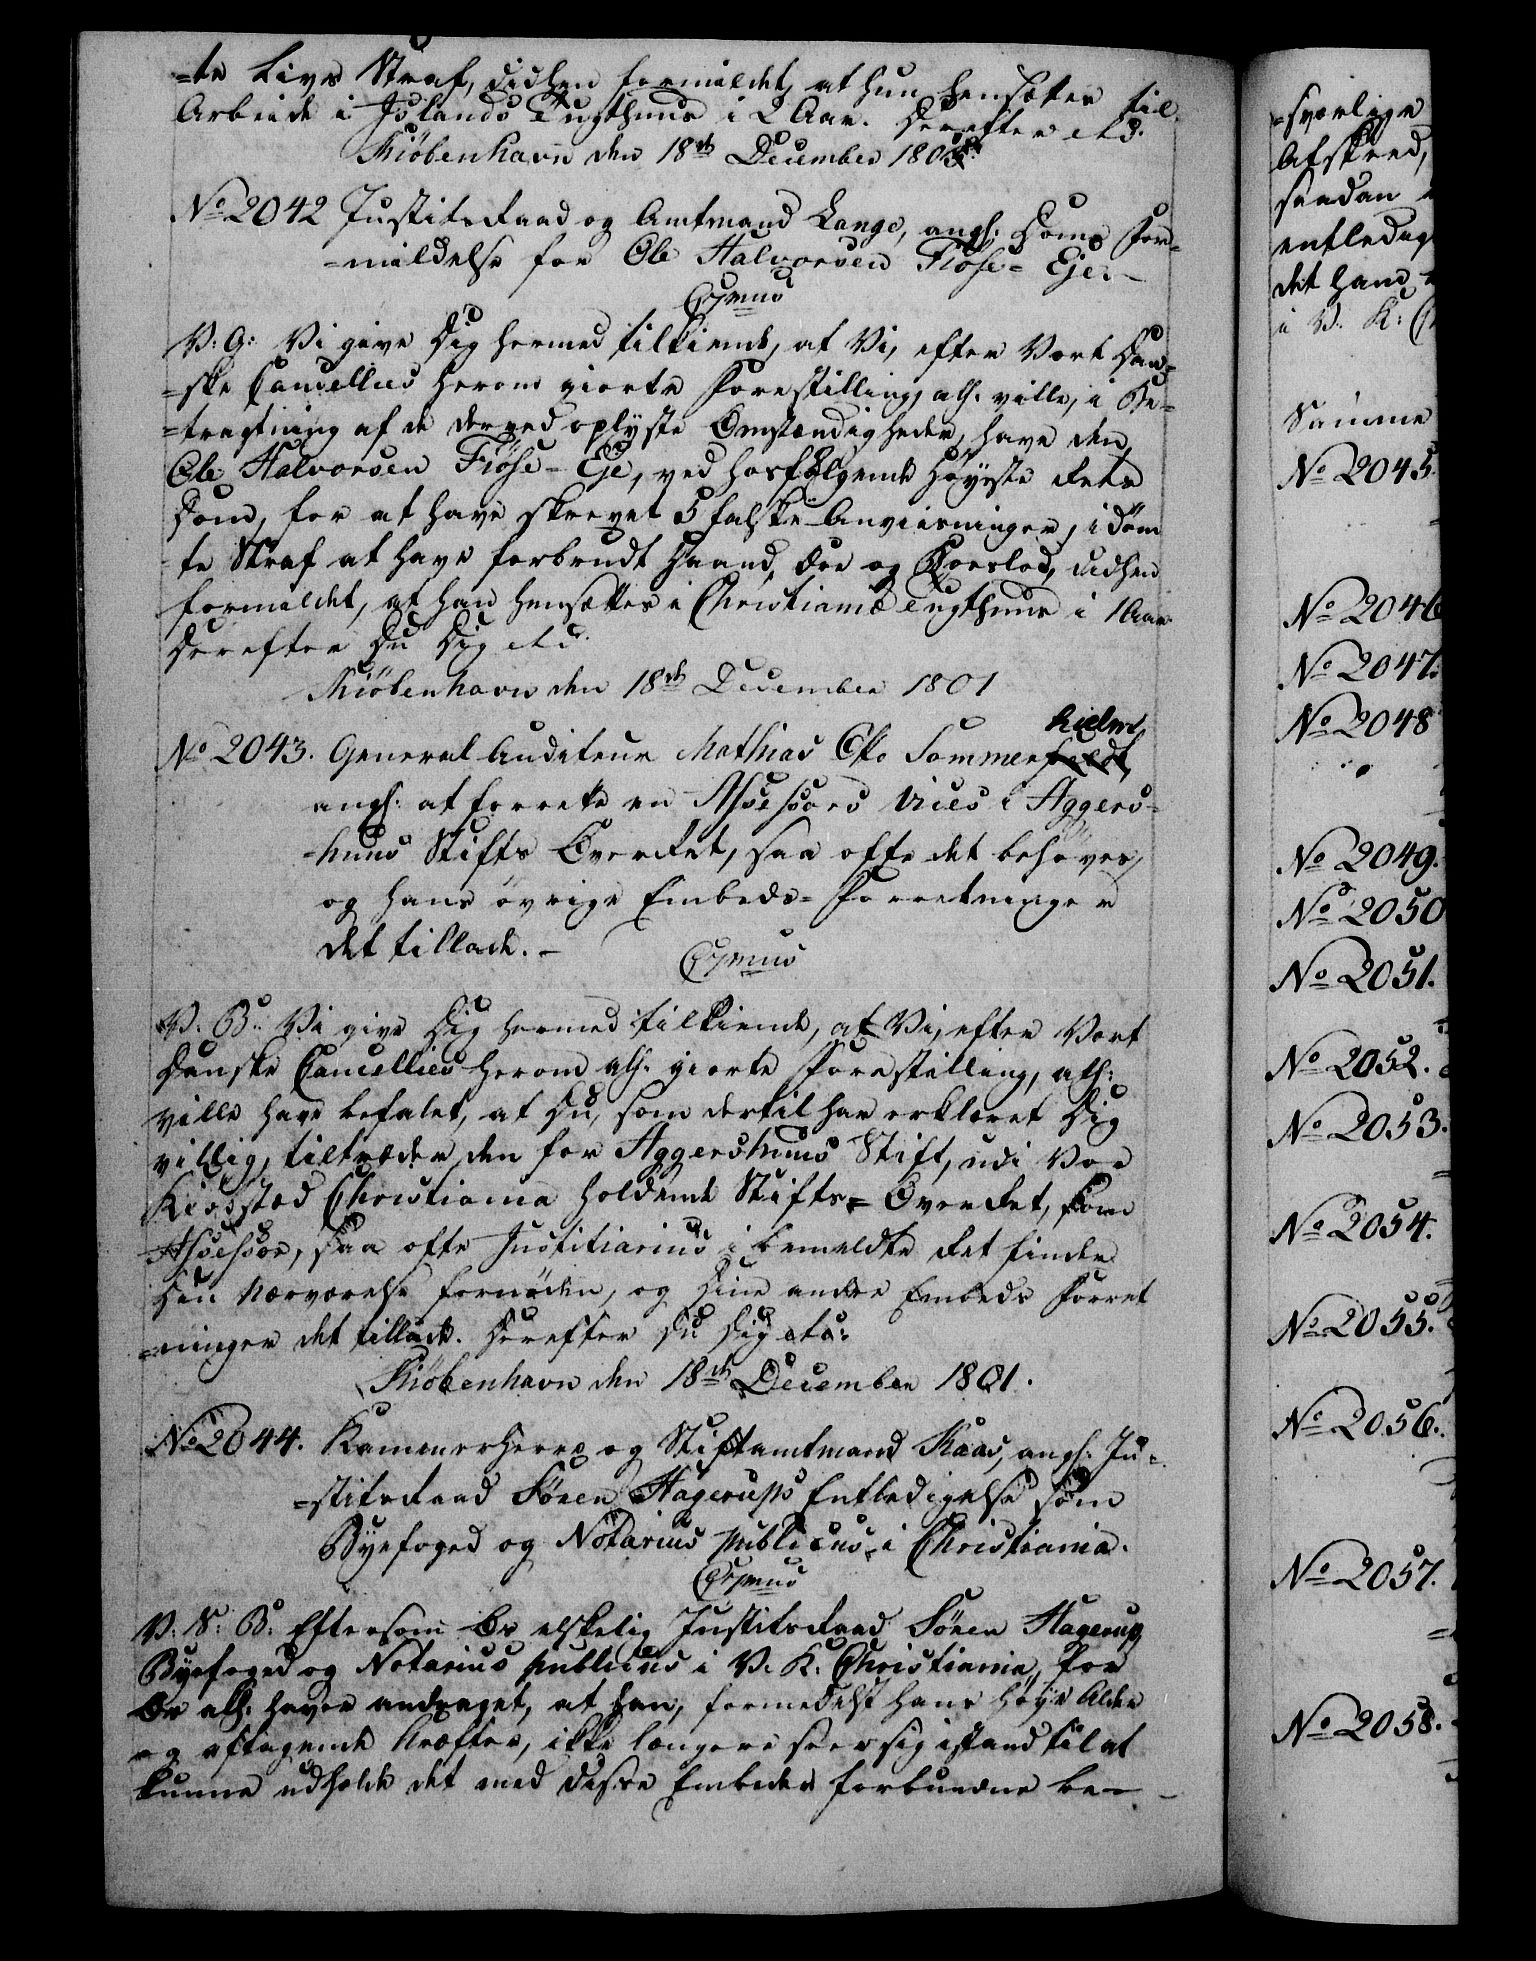 =te Livs Straf, didhen formildet, at hun hensættes til
Arbeide i Islands Tugthuus i 2 Aar. Derefter etc.
Kiøbenhavn den 18de December 1801.
No 2042 Justitsraad og Amtmand Lange, angl: Doms For=
=mildelse for Ole Halvorsen Flöse=Eje.
C: 7mus
V: G: Vi give Dig hermed tilkiende, at Vi, efter Vort Dan=
=ske Cancellies herom giorte Forestilling, allr. ville, i Be=
=tragtning af de derved oplyste Omstændigheder, have den
Ole Halvorsen Flöse=Eje, ved hosfølgende Høyeste Rets
Dom, for at have skrevet 5 falske Anviisninger, idöm
te Straf at have forbrudt Haand, Ære og Boeslod, didhen
formildet, at han hensættes i Christianiæ Tugthuus i 1 Aar
Derefter Du Dig etc.
Kiöbenhavn den 18de December 1801
No 2043. General Auditeur Mathias Otto Sommerfeldt, hielm
angl: at forrette en Assessors Vices i Aggers=
=huus Stifts Overret, saa ofte det behöves,
og hans övrige Embeds=Forretninger
det tillade.
C: 7mus
V. B.: Vi give Dig hermed tilkiende, at Vi, efter Vort
Danske Cancellies herom allr. giorte Forestilling, allr:
ville have befalet, at Du, som dertil har erklæret Dig
villig, tiltræder den for Aggershuus Stift, udi Vor
Kiöbsted Christiania holdende Stifts=Overret, som
Assessor, saa ofte Justitiarius i bemeldte Ret finder
Din Nærværelse fornöden, og Dine andre Embeds Forret
=ninger det tillade. Derefter Du Dig etc.
Kiöbenhavn den 18de December 1801.
No 2044. Kammerherre og Stiftamtmand Kaas, angl: Ju=
=stitsraad Sören Hagerups Entledigelse som
Byefoged og Notarius publicus i Christiania.
C: 7mus
V: S: B: Eftersom Os elskelig Justitsraad Sören Hagerup,
Byefoged og Notarius publicus i V. K. Christiania, for
Os allr. haver andraget, at han, formedelst hans høye Alder
og aftagende Kræfter, ikke længere seer sig istand til at
kunne udholde det med disse Embeder forbundne be=
=sværlige
Afskeed,
saadan
entledige
det ham
i V. K: C
Samme
No 2045.
No 2046
No 2047.
No 2048
No 2049.
No 2050
No 2051.
No 2052.
No 2053.
No 2054.
No 2055.
No 2056.
No 2057.
No 2058.